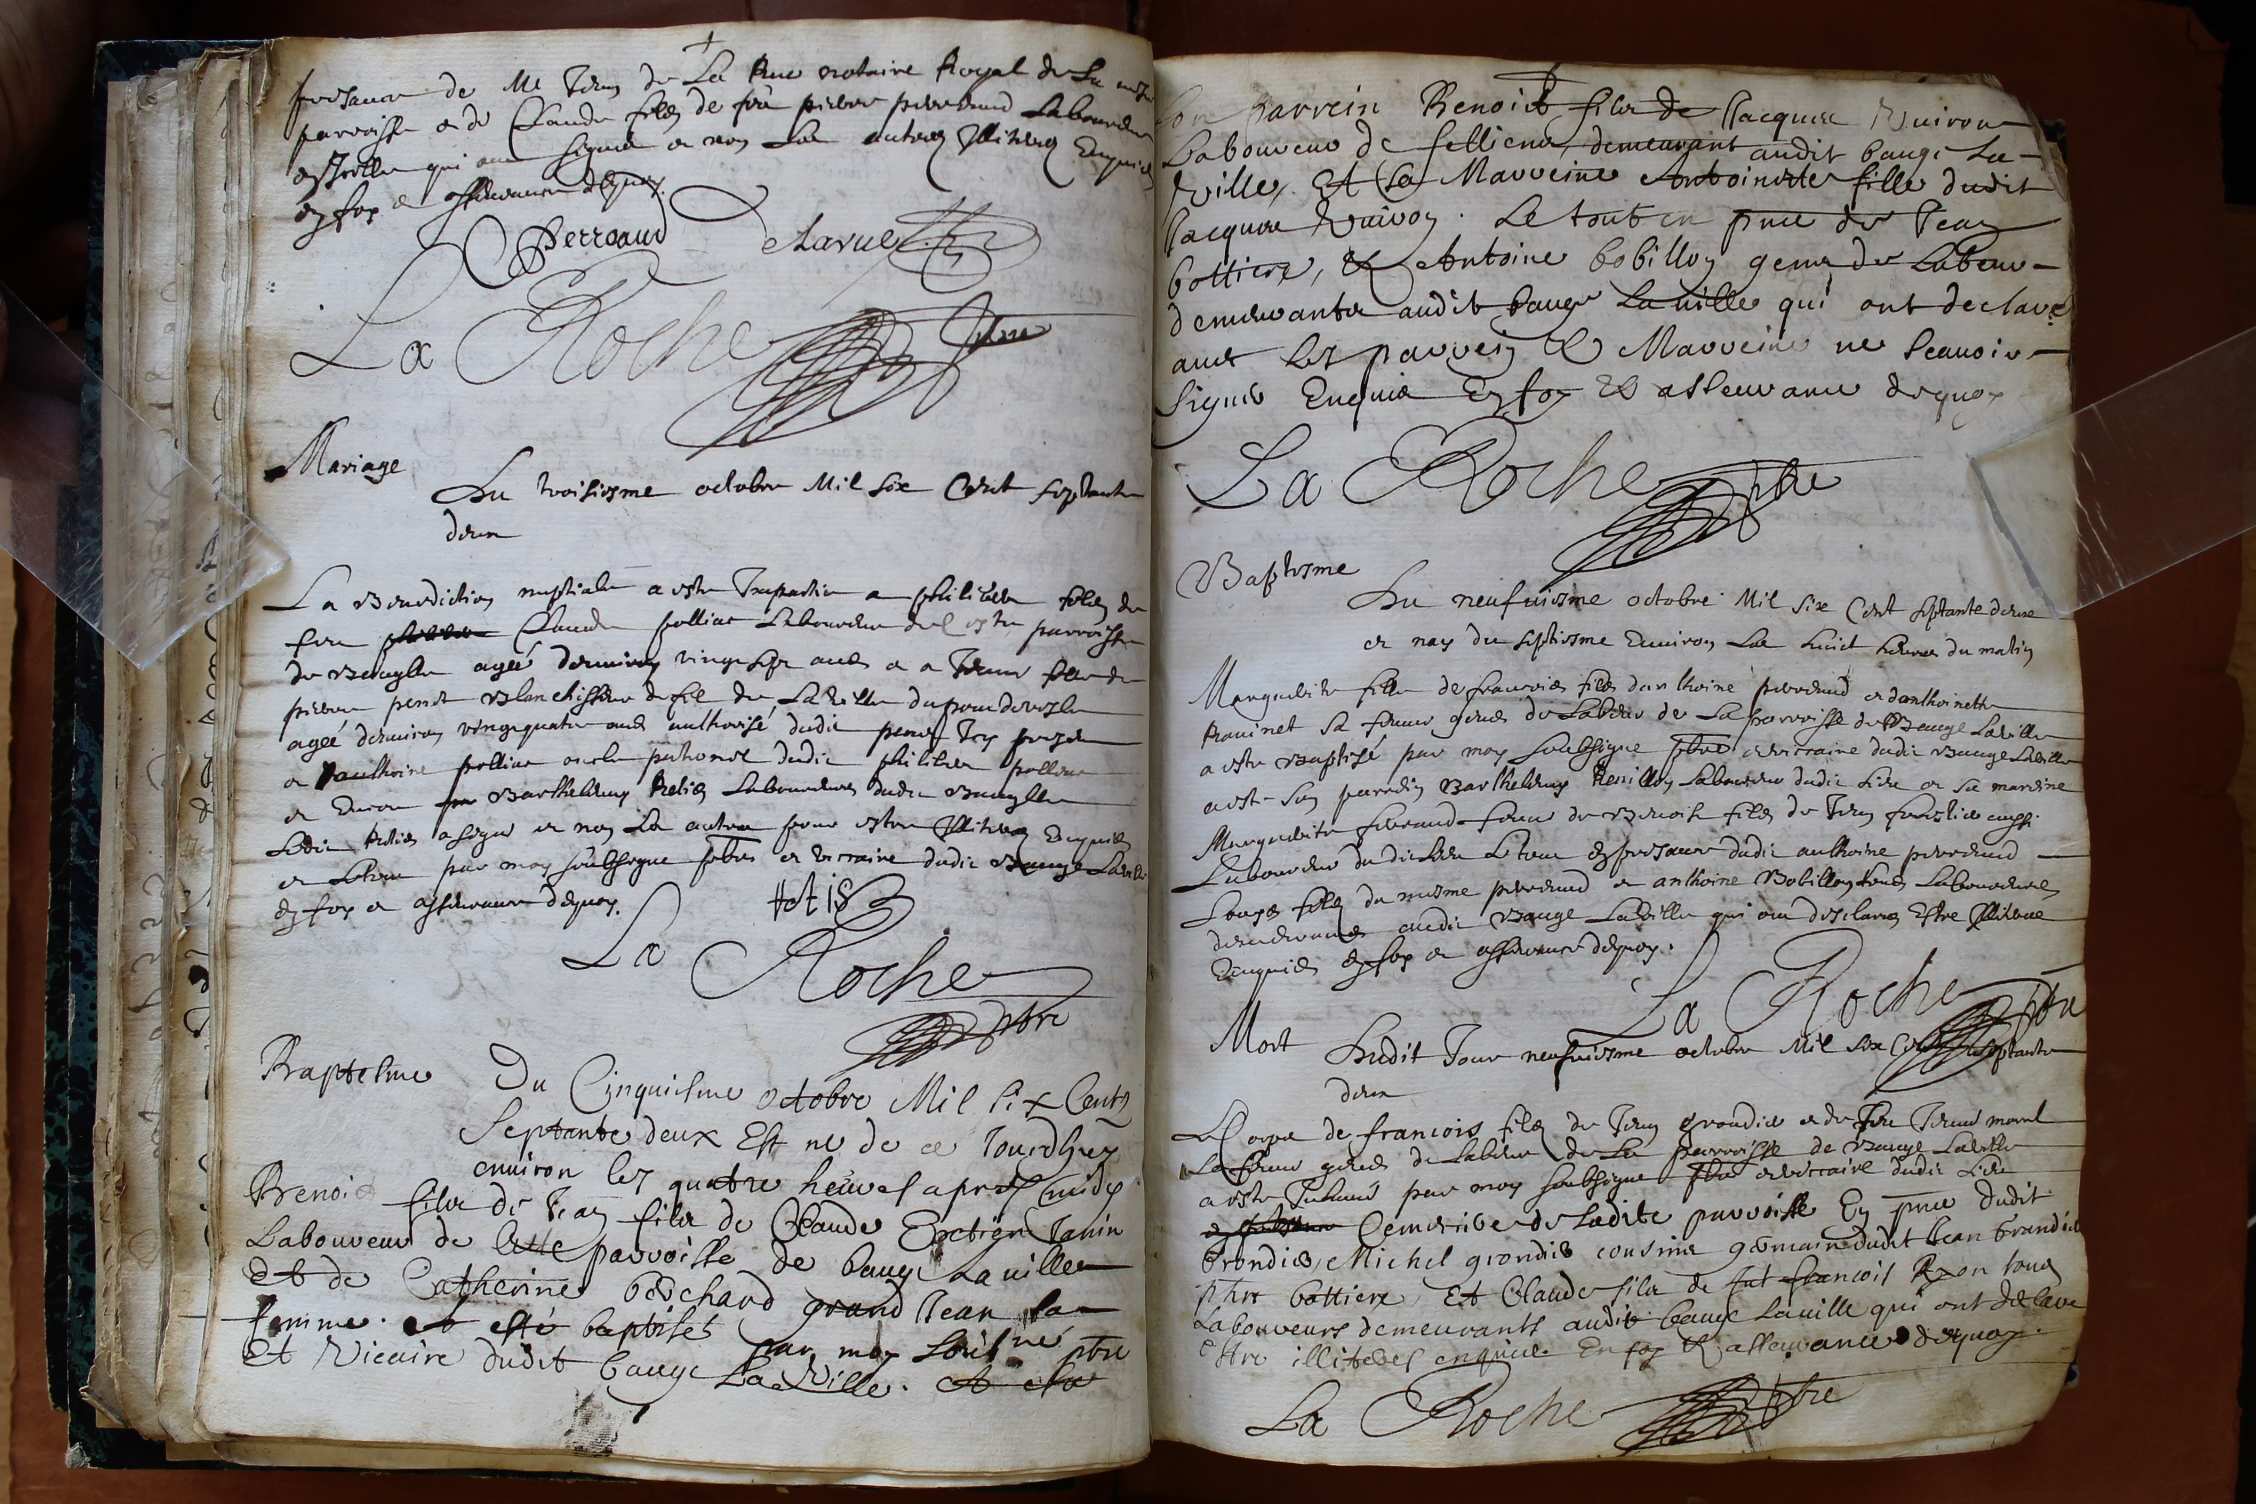 presance de Me Jean de La Rue notaire Royal de la mesme
parroisse & de Claude filz de feu pierre perreaud Laboureur
qui ont signé & non les autres Illiteres Enquis
en foy & asseurance dequoy.
Perreaud delarue
La Roche ptre
Mariage
Du troisiesme octobre Mil six Cent septante
deux
La Benediction nuptiale a este Impartie a philibert filz de
feu Claude polliac Laboureur de Ceste parroisse
de Baugella agé denviron vingt six ans & a Jeanne fille de
pierre perret Blanchisseur de fil de La Ville du pondevesle
agée denviron vingtquatre ans authorisé dudit perret Icy present
& danthoine polliac oncle paternel dudit philibert polliac
& Encore Barthelemy Retis Laboureur dudit Baugella
Ledit Retis a signé & non Les autres pour estre Illiteres Enquis
& Le tout par moy soubsigne ptre & viccaire dudit Bauge Laville
en foy & asseurance dequoy.
Retis
La Roche ptre
Baptesme
Du Cinquiesme octobre Mil six Centz
Septante deux Est né de ce Jourdhuy
environ les quatre heures apres midy
Benoit filz de Jean filz de Claude Janin
Laboureur de cette parroisse de bauge La ville
Et de Catherine bouchard grand Jean sa
femme. et esté baptisé par moy soussiné ptre
Et Vicaire dudit bauge La Ville. A esté
son Parrein Benoit filz de Jacques Vuiron
Laboureur de felliens, demeurant audit bauge La-
Ville, Et Sa Marreine Antoinette fille dudit
Jacques Vuiron. Le tout en pnce de Jean
bottiere, & Antoine bobillon gens de Labeur-
demeurants audit bauge La ville qui ont declaré
avec Les parrein & Marreine ne scavoir-
signer Enquis En foy & asseurance dequoy
La Roche ptre
Baptesme
Du neufviesme octobre Mil six Cent septante deux
& nay du septiesme Environ Les huict heures du matin
Marguerite fille de francois filz danthoine perreaud & danthoinette
Ravinet sa femme gens de Labeur de La parroisse de Bauge Laville
a este Baptisé par moy soubsigne ptre & viccaire dudit Bauge Laville
a est son parrein Barthelemy Laboureur dudit Lieu & sa mareine
Marguerite femme de Benoist filz de Jean aussi
Laboureur dudit Lieu Le tout en presance dudit anthoine perreaud
Louys filz du mesme perreaud & anthoine Bobillon tous Laboureurs
demeurans audit Bauge Laville qui ont desclares Estre Illiteres
Enquis en foy & asseurance dequoy.
La Roche ptre
Mort
Dudit Jour neufviesme octobre Mil six Cent septante
deux
Le Corps de francois filz de Jean grandis & de feu Jeanne morel
sa femme gens de Labeur de La parroisse de Bauge Laville
a este Inhumé par moy soubsigne ptre & viccaire dudit Lieu
Cemetiere de Ladite parroisse En pnce dudit
Grandis, Michel grondis cousins germain dudit Jean Grandis
bottiere, Et Claude filz de fut francois tous
Laboureurs demeurants audit bauge La ville qui ont declare
Estre illiteres enquis En foy & asseurance dequoy.
La Roche ptre